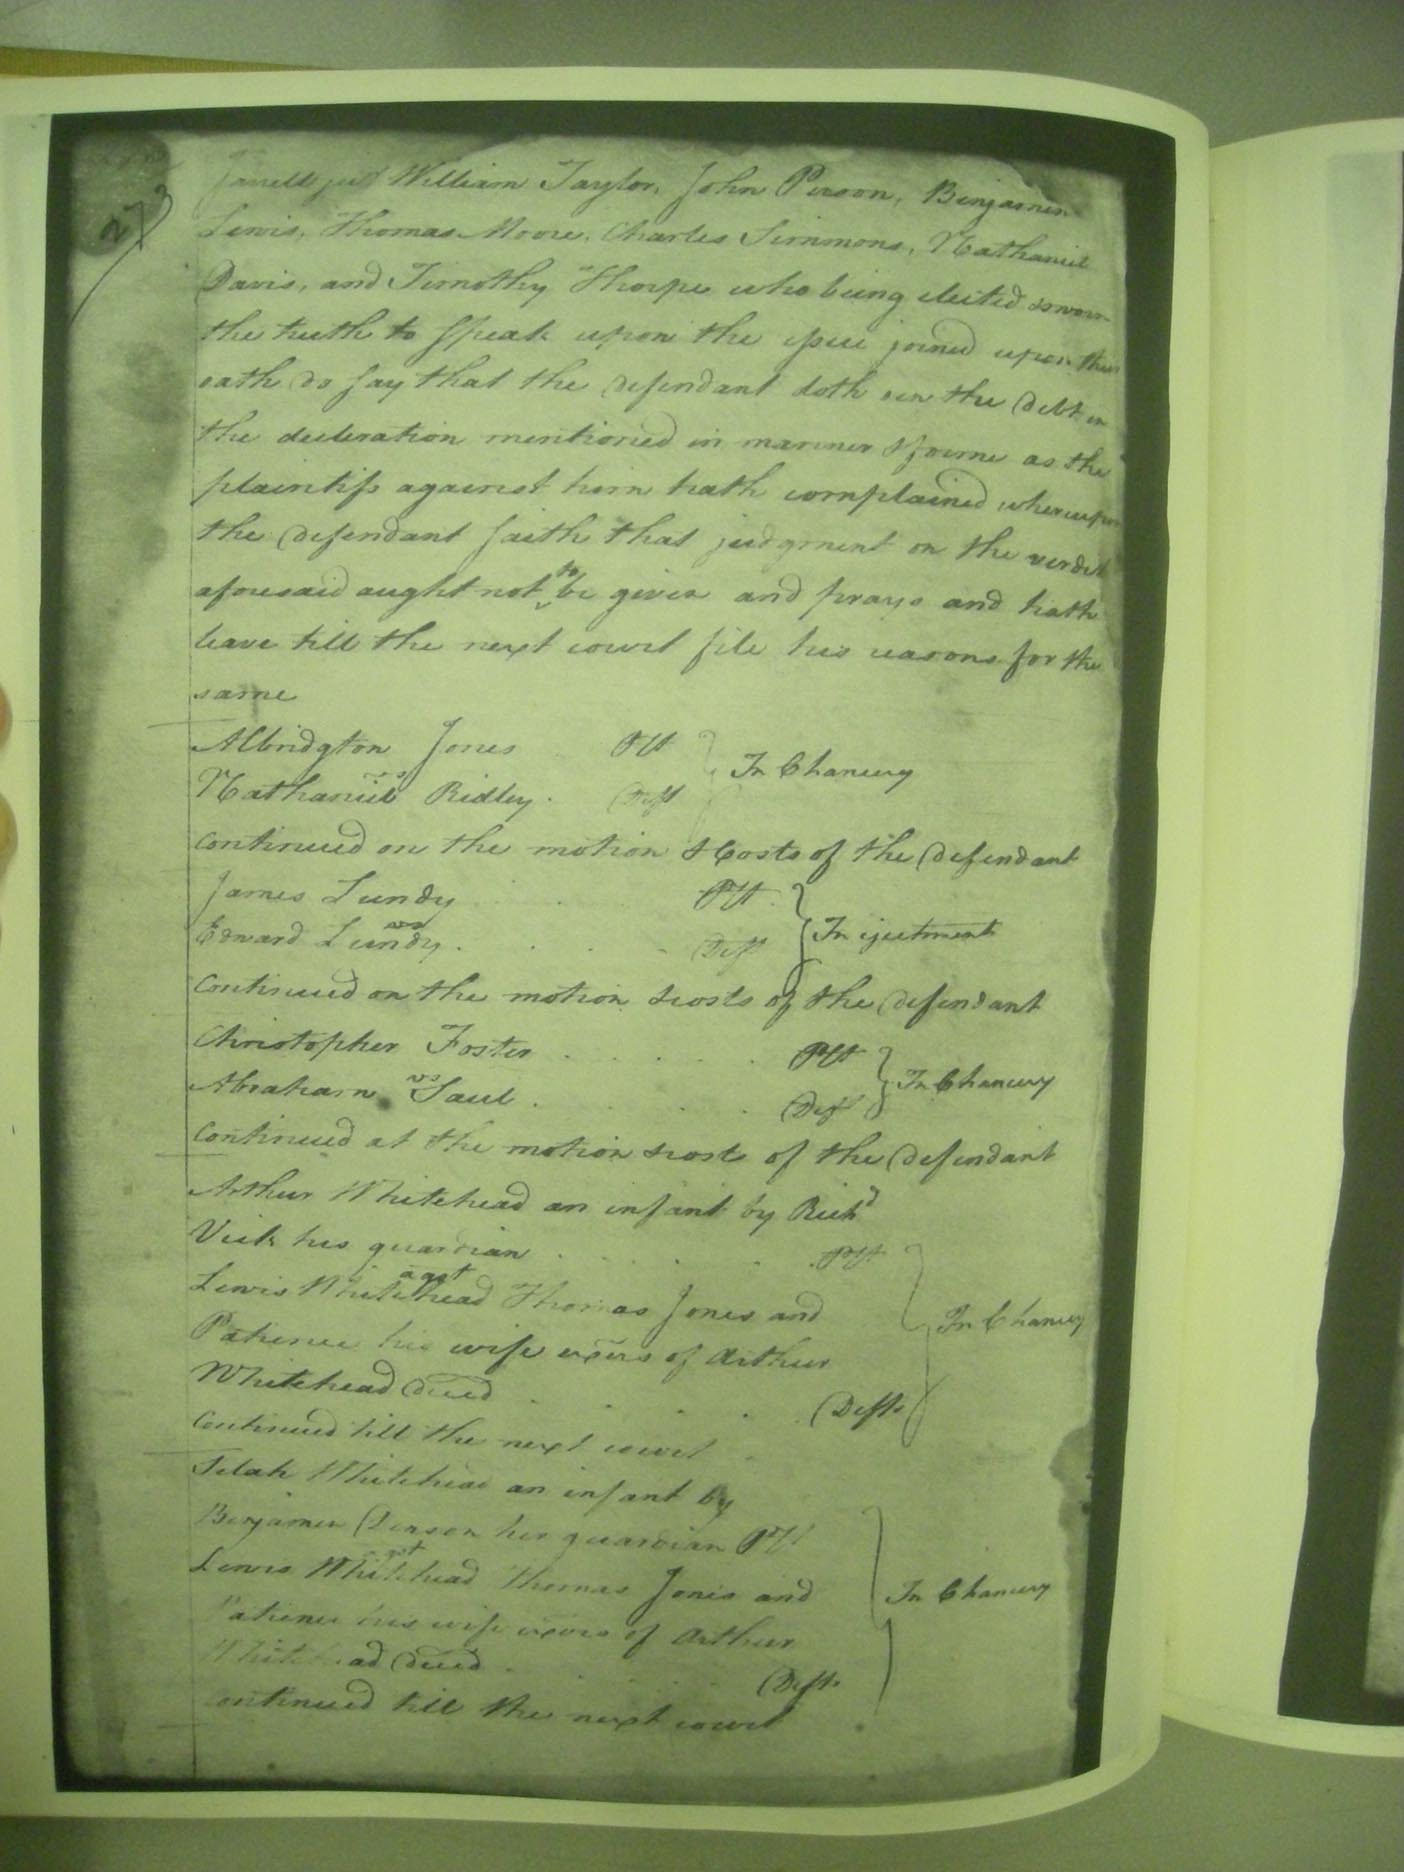 273
Jarrell jur William Taylor, John Person, Benjamin
Lewis, Thomas Moore, Charles Simmons, Nathaniel
Davis, and Timothy Thorpe who being elected sworn
the truth to speak upon the issue joined upon their
oath do say that the defendant doth the debt in
the decleration mentioned in manner & forme as the
plaintiff against him hath complained whereupon
the defendant saith that judgment on the verdit
aforesaid aught not to be given and prays and hath
leave till the next court file his reasons for the
same
Albridgton Jones Plt
vs In Chancery
Nathaniel Ridley. Deft
Continued on the motion & Costs of the defendant
James Lundy Plt
vs In ejectment
Edward Lundy. Deft
Continued on the motion & costs of the defendant
Christopher Foster Plt
vs In Chancery
Abraham Saul. Deft
Continued at the motion & costs of the defendant
Arthur Whitehead an infant by Richd
Vick his guardian Plt
agst
Lewis Whitehead Thomas Jones and In Chancery
Patience his wife exors of Arthur
Whitehead decd Defts
Continued till the next court
Selah Whitehead an infant by
Benjamin Denson her guardian Plt
agst
Lewis Whitehead Thomas Jones and In Chancery
Patience his wife exors of Arthur
Whitehead decd Defts
Continued till the next court